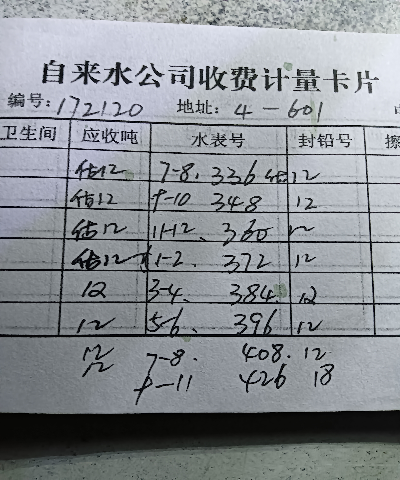 自来水公司收费计量卡片
编号：172120 地址：4-601
卫生间 应收吨 水表号 封铅号
估12 7-8. 336 估12
估12 9-10 348 12
估12 11-12、360 12
估12 1-2、372 12
12 3-4、384 12
12 5-6、396 12
12 7-8. 408. 12
12 9-11 426 18